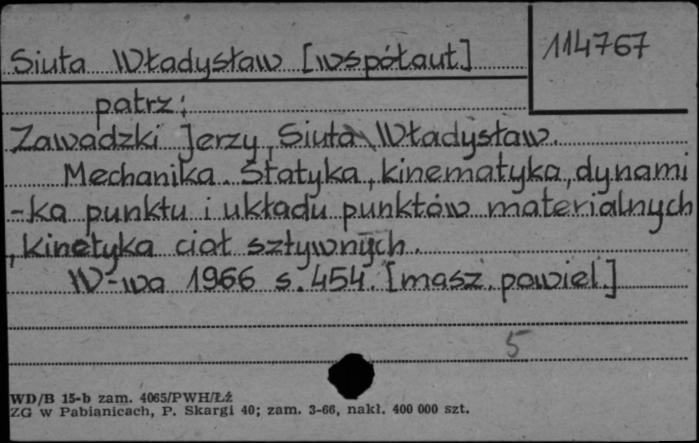 Siuta Władysław [współaut]
114767
patrz:
Zawadzki Jerzy, Siuta Władysław.
Mechanika. Statyka, kinematyka, dynami
-ka punktu i układu punktów materialnych
, kinetyka ciał sztywnych.
W-wa 1966 s. 454. [masz. powiel.]
5
WD/B 15-b zam. 4065/PWH/Łź
ZG w Pabianicach, P. Skargi 40; zam. 3-66, nakł. 400 000 szt.